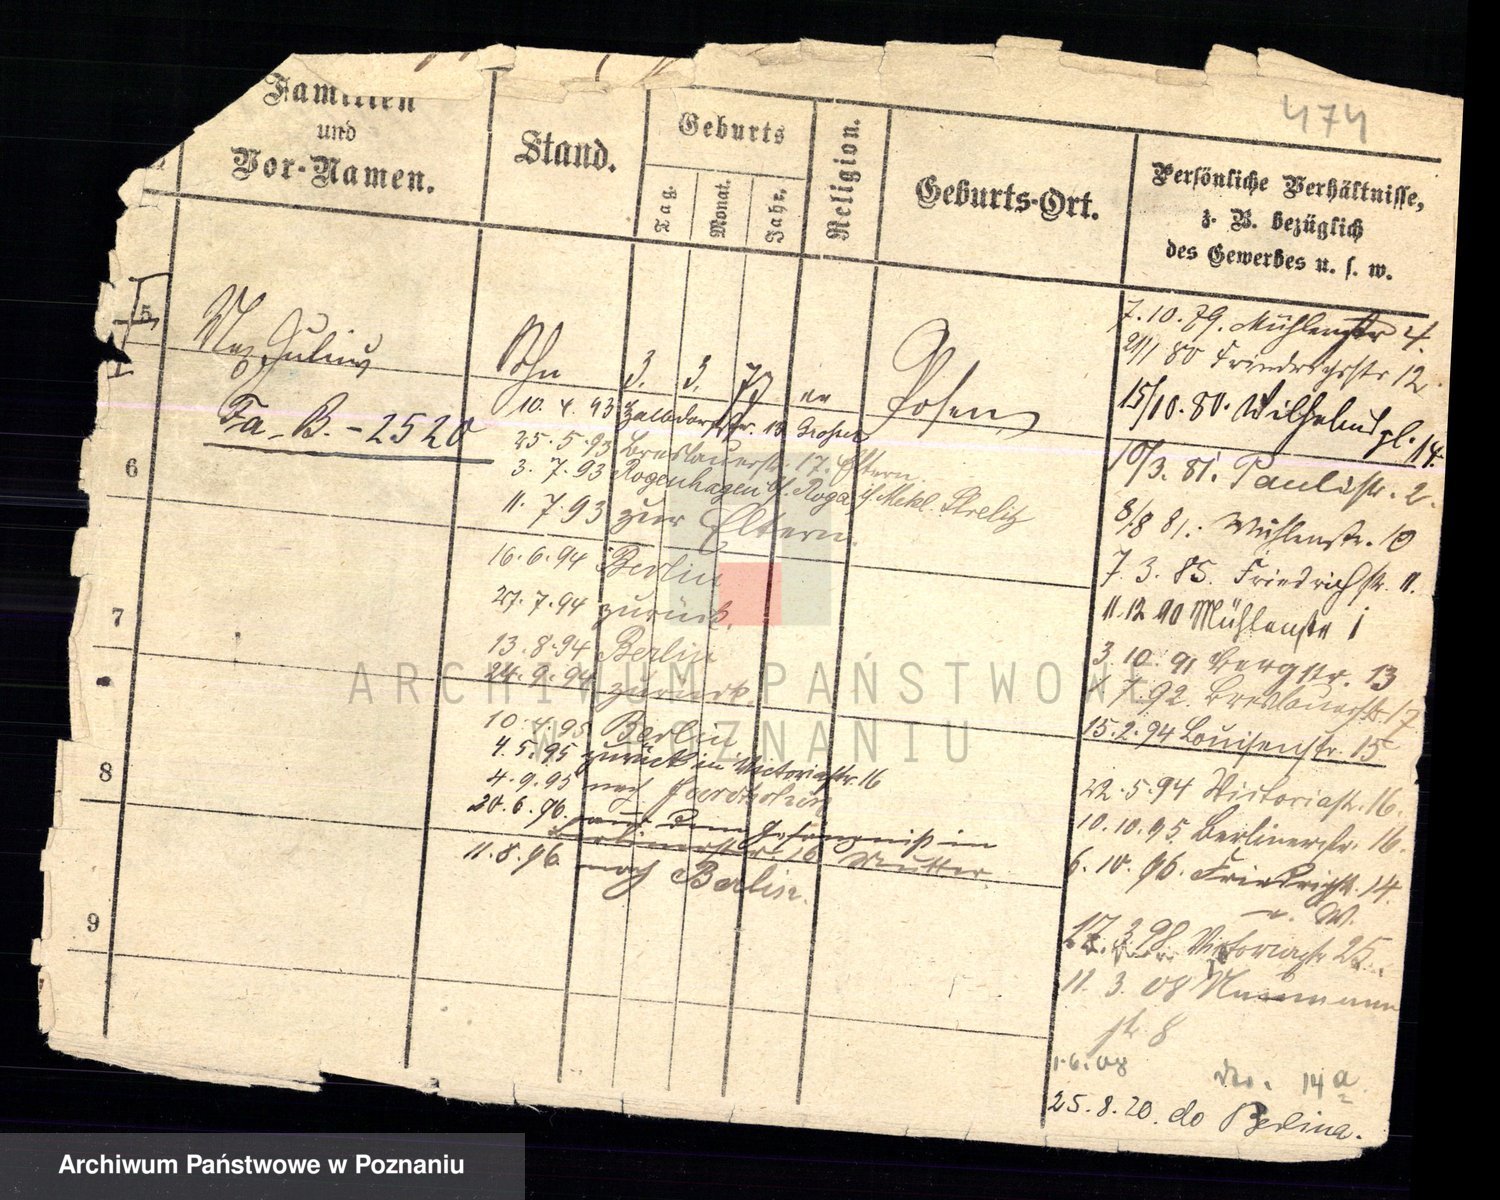 474
Familien
und
Vor-Namen.
Stand.
Geburts
Tag.
Monat.
Jahr.
Religion.
Geburts-Ort.
Persönliche Verhältnisse,
z. B. bezüglich
des Gewerbes u. s. w.
5
Max Julius
Sohn
3. 3. 79
Posen
Fa. B. - 2520
6
7
8
9
10. 4. 93
25. 5. 93 Breslauerstr. 17. Eltern
3. 7. 93 Rogenhagen Meckl. Strelitz
11. 7. 93 zur Eltern.
16. 6. 94 Berlin
27. 7. 94 zurück.
13. 8. 94 Berlin
24. 9. 94 zurück.
10. 4. 95 Berlin
4. 5. 95 zurück in Victoriastr. 16
4. 9. 95 nach
20. 6. 96. aus dem Gefängniß in
Berlinerstr. 16 Mutter
11. 8. 96. nach Berlin.
7. 10. 79. Mühlenstr 4.
21/1 80 Friedrichsstr 12
15/10. 80. Wilhelmspl. 14.
10/3. 81. Paulistr. 2.
8/8 81. Mühlenstr. 10
7. 3. 85. Friedrichstr. 11.
11. 12 90 Mühlenstr 1
3 10. 91 Bergstr. 13
1 7. 92. Breslauerstr. 17
15. 2. 94 Louisenstr. 15
22. 5. 94 Victoriastr. 16.
10. 10. 95 Berlinerstr. 16.
6. 10. 96. Friedrichstr. 14.
17. 3. 98 Victoriastr 25.
11. 3. 08 Naumann
str. 8
1. 6. 08 14 a
25. 8. 20. do Berlina.
ARCHIWUM PAŃSTWOWE
W POZNANIU
Archiwum Państwowe w Poznaniu